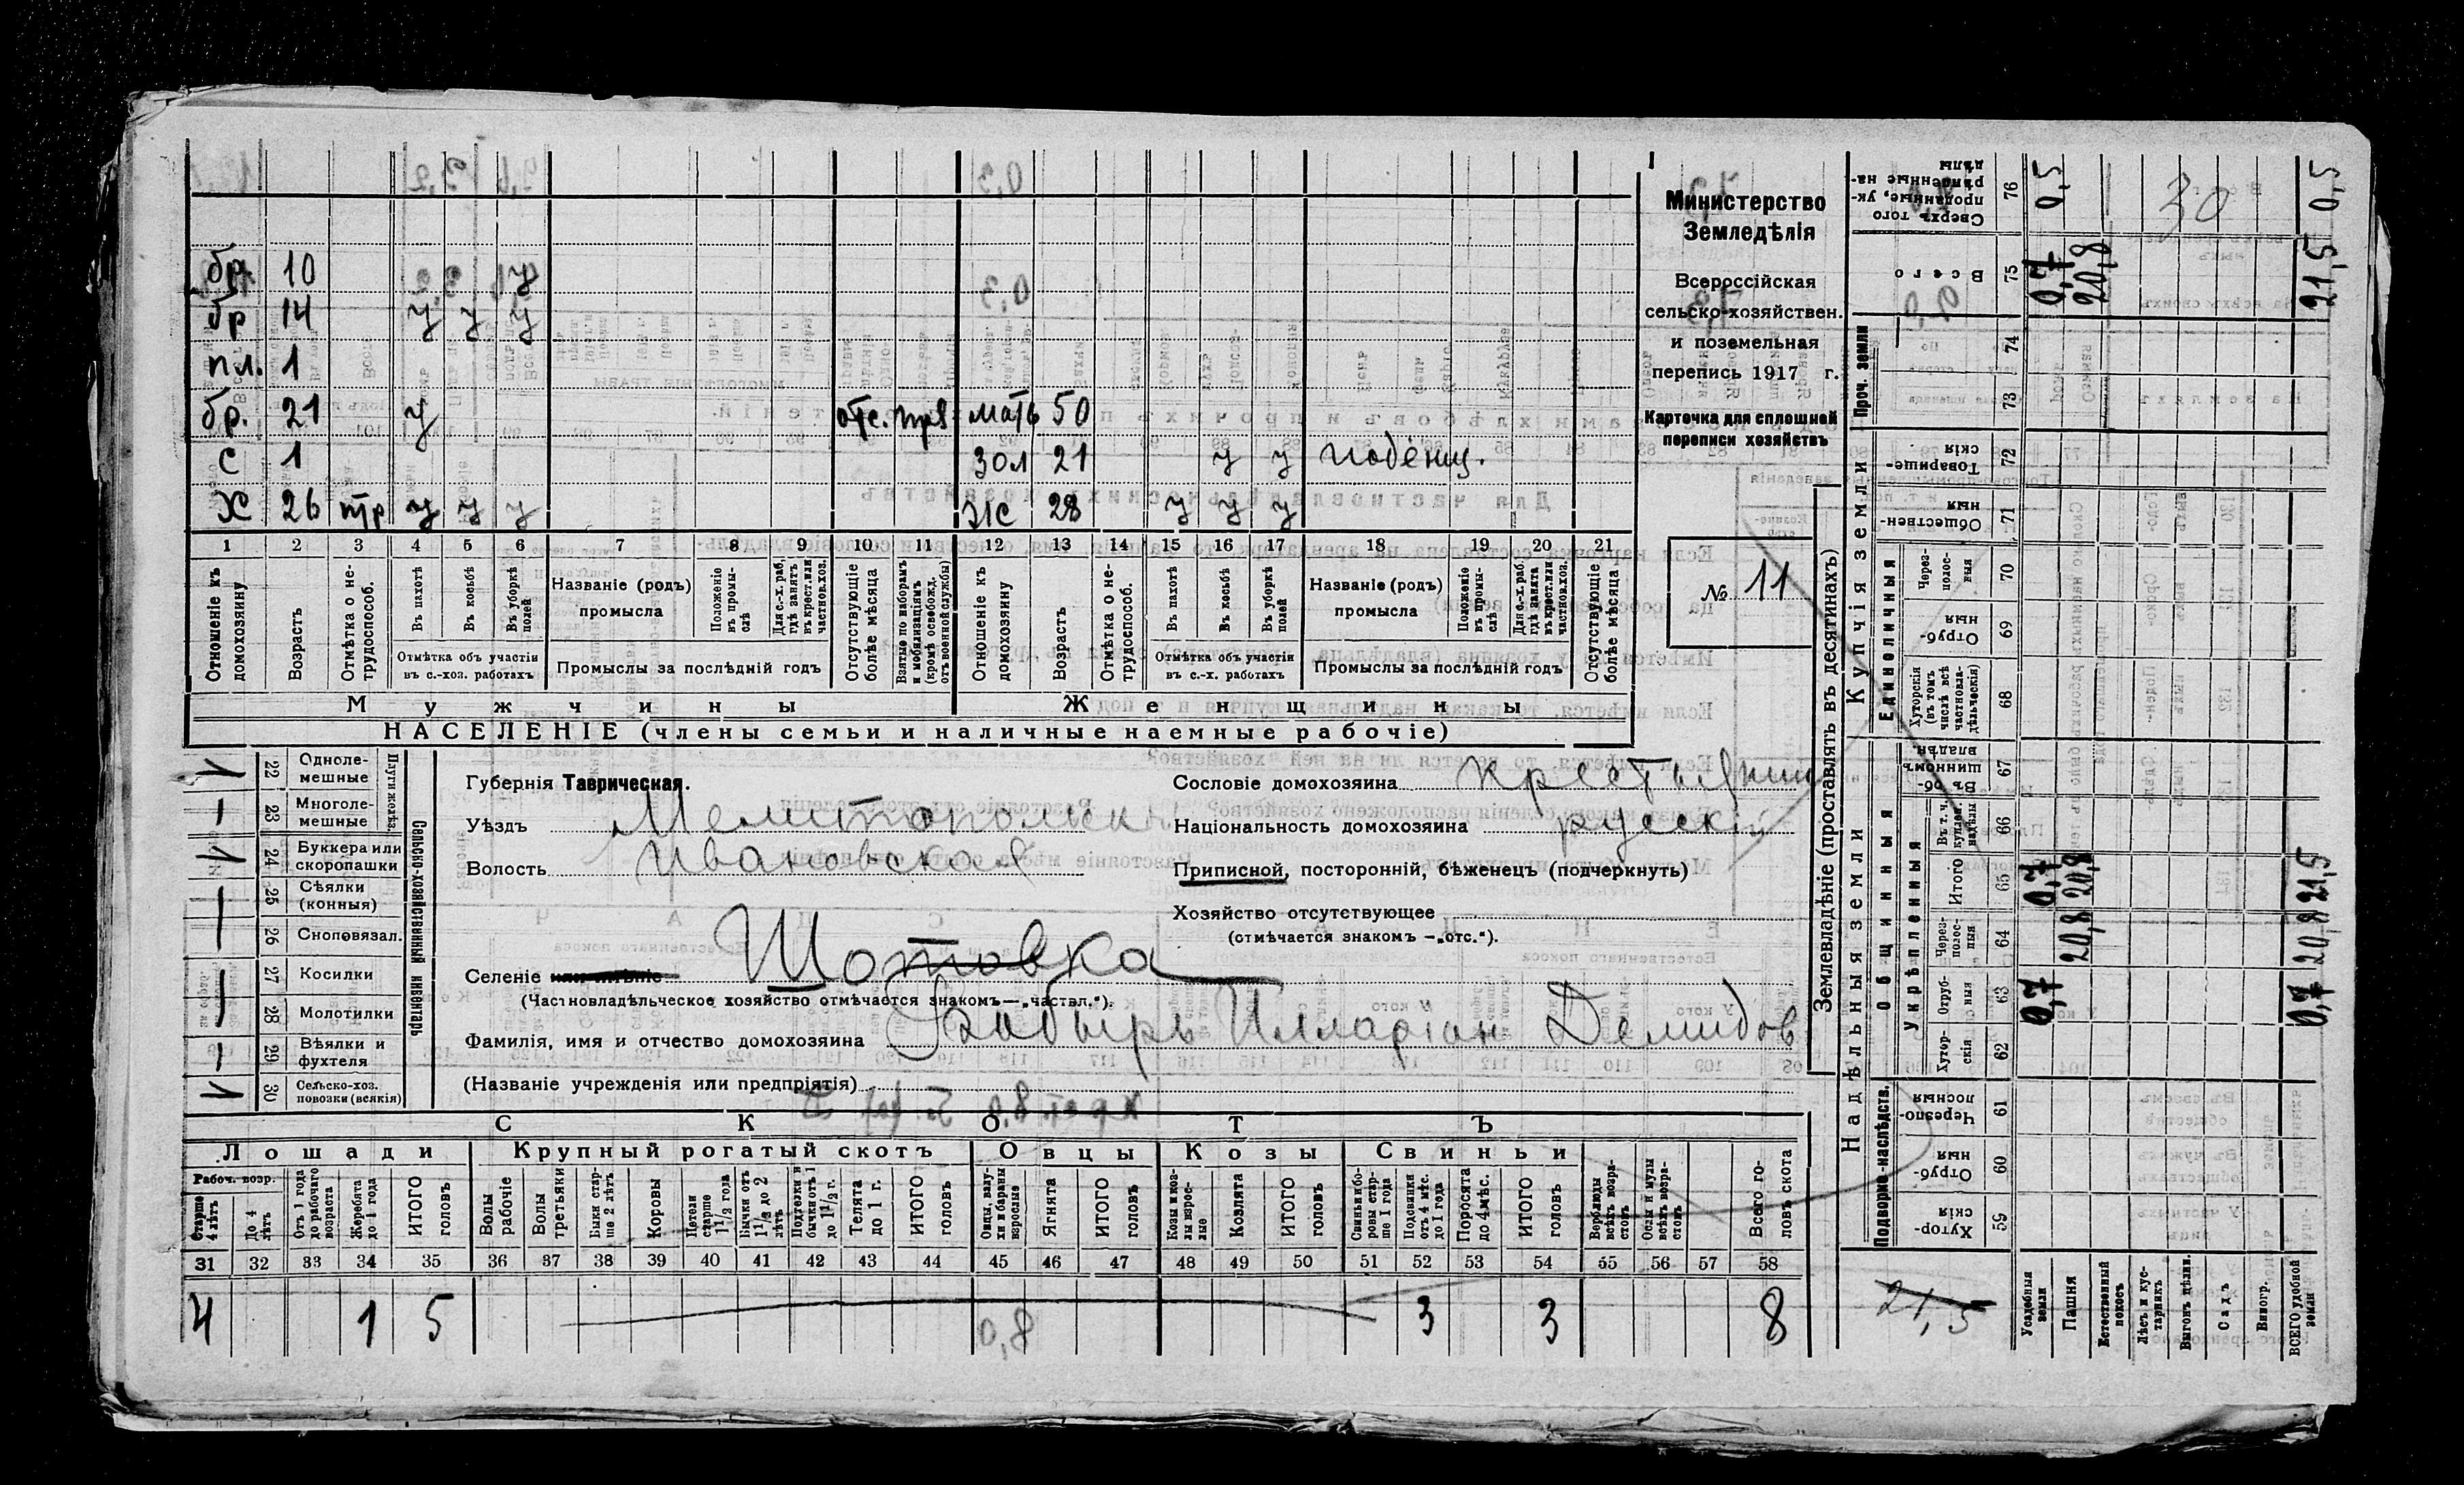 бр. 10 у
бр 14 у у у
пл. 1
бр. 21 у отс. мать 50
с 1 зол 21 у у
Х 26 у у у ж 28 у у у
1 2 3 4 5 6 7 8 9 10 11 12 13 14 15 16 17 18 19 20 21
Отношеніе къ домохозяину
Возрастъ
Отмѣтка о не-трудоспособ.
Въ пахотѣ
Въ косьбѣ
Въ уборкѣ полей
Отмѣтка объ участіи въ с.-хоз. работахъ
Названіе (родъ) промысла
Положеніе въ промы-слѣ
Для с.-х. раб. гдѣ занятъ въ крест. или частнов. хоз.
Промыслы за послѣдній годъ
Отсутствующіе болѣе мѣсяца
Взятые по наборамъ и мобилизаціямъ (кромѣ освобожд. отъ военной службы)
Отношеніе къ домохозяину
Возрастъ
Отмѣтка о не-трудоспособ.
Въ пахотѣ
Въ косьбѣ
Въ уборкѣ полей
Отмѣтка объ участіи въ с.-х. работахъ
Названіе (родъ) промысла
Положеніе въ промы-слѣ
Для с.-х. раб. гдѣ занята въ крест. или частнов. хоз.
Промыслы за послѣдній годъ
Отсутствующіе болѣе мѣсяца
Мужчины Женщины
НАСЕЛЕНІЕ (члены семьи и наличные наемные рабочіе)
Министерство
Земледѣлія
Всероссійская
сельско-хозяйствен.
и поземельная
перепись 1917 г.
Карточка для сплошной
переписи хозяйствъ
№ 11
22 Одноле-мешные 1
23 Многоле-мешные —
Плуги желѣз.
24 Буккера или скоропашки 1
25 Сѣялки (конныя) —
26 Сноповязал. —
27 Косилки —
28 Молотилки —
29 Вѣялки и фухтеля —
30 Сельско-хоз. повозки (всякія) 1
Сельско-хозяйственный инвентарь
Губернія Таврическая.
Уѣздъ Мелитопольск
Волость Ивановская
Селеніе или имѣніе Шотовка
(Частновладѣльческое хозяйство отмѣчается знакомъ—„частвл.“).
Фамилія, имя и отчество домохозяина Илларіон Демидов
(Названіе учрежденія или предпріятія)
Сословіе домохозяина крестьянин
Національность домохозяина русскій
Приписной, посторонній, бѣженецъ (подчеркнуть)
Хозяйство отсутствующее
(отмѣчается знакомъ —„отс.“).
СКОТЪ
Лошади Крупный рогатый скотъ Овцы Козы Свиньи
Рабоч. возр.
Старше 4 лѣтъ
До 4 лѣтъ
Отъ 1 года до рабочаго возраста
Жеребята до 1 года
ИТОГО головъ
Волы рабочіе
Волы третьяки
Быки стар-ше 2 лѣтъ
Коровы
Нетели старше 1½ года
Бычки отъ 1½ до 2 лѣтъ
Подтелки и бычки отъ 1 до 1½ г.
Телята до 1 г.
ИТОГО головъ
Овцы, валу-хи и бараны взрослые
Ягнята
ИТОГО головъ
Козы и коз-лы взрос-лые
Козлята
ИТОГО головъ
Свиньи и бо-ровы стар-ше 1 года
Подсвинки отъ 4 мѣс. до 1 года
Поросята до 4 мѣс.
ИТОГО головъ
Верблюды всѣхъ возра-стовъ
Ослы и мулы всѣхъ возра-стовъ
Всего го-ловъ скота
31 32 33 34 35 36 37 38 39 40 41 42 43 44 45 46 47 48 49 50 51 52 53 54 55 56 57 58
4 1 5 3 3 8
Землевладѣніе (проставлять въ десятинахъ)
Надѣльныя земли Купчія земли Проч. земли
Подворно-наслѣдств.
Общинныя
Укрѣпленныя
Единоличныя
Сверхъ того проданные, ук-рѣпленные на-дѣлы 76 0,5 0,5
Всего 75 0,7 20,8 21,5
74
73
Товарище-скія 72
Обществен-ныя 71
Через-полос-ныя 70
Отруб-ныя 69
Хуторскія (въ томъ числѣ всѣ частновла-дѣльческія) 68
Въ об-щинномъ владѣн. 67
Въ т. ч. куплен. надѣлы 66
Итого 65 0,7 20,8 21,5
Через-полос-ныя 64 20,8 20,8
Отруб-ныя 63 0,7 0,7
Хутор-скія 62
Черезпо-лосныя 61
Отруб-ныя 60
Хутор-скія 59
30
21,5
Усадебныя земли
Пашня
Естественный покосъ
Лѣсъ и кус-тарникъ
Выгонъ цѣлин.
Садъ
Виногр.
ВСЕГО удобной земли